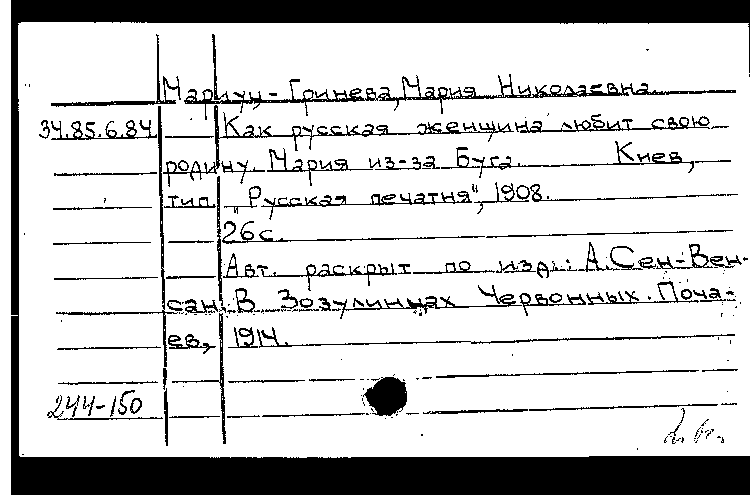 Мариуц-Гринева, Мария Николаевна.
34.85.6.84 Как русская женщина любит свою
родину. Мария из-за Буга. Киев,
тип. "Русская печатня", 1908.
26с.
Авт. раскрыт по изд.: А.Сен-Вен-
сан. В Зозулинцах Червонных. Поча-
ев, 1914.
244-150